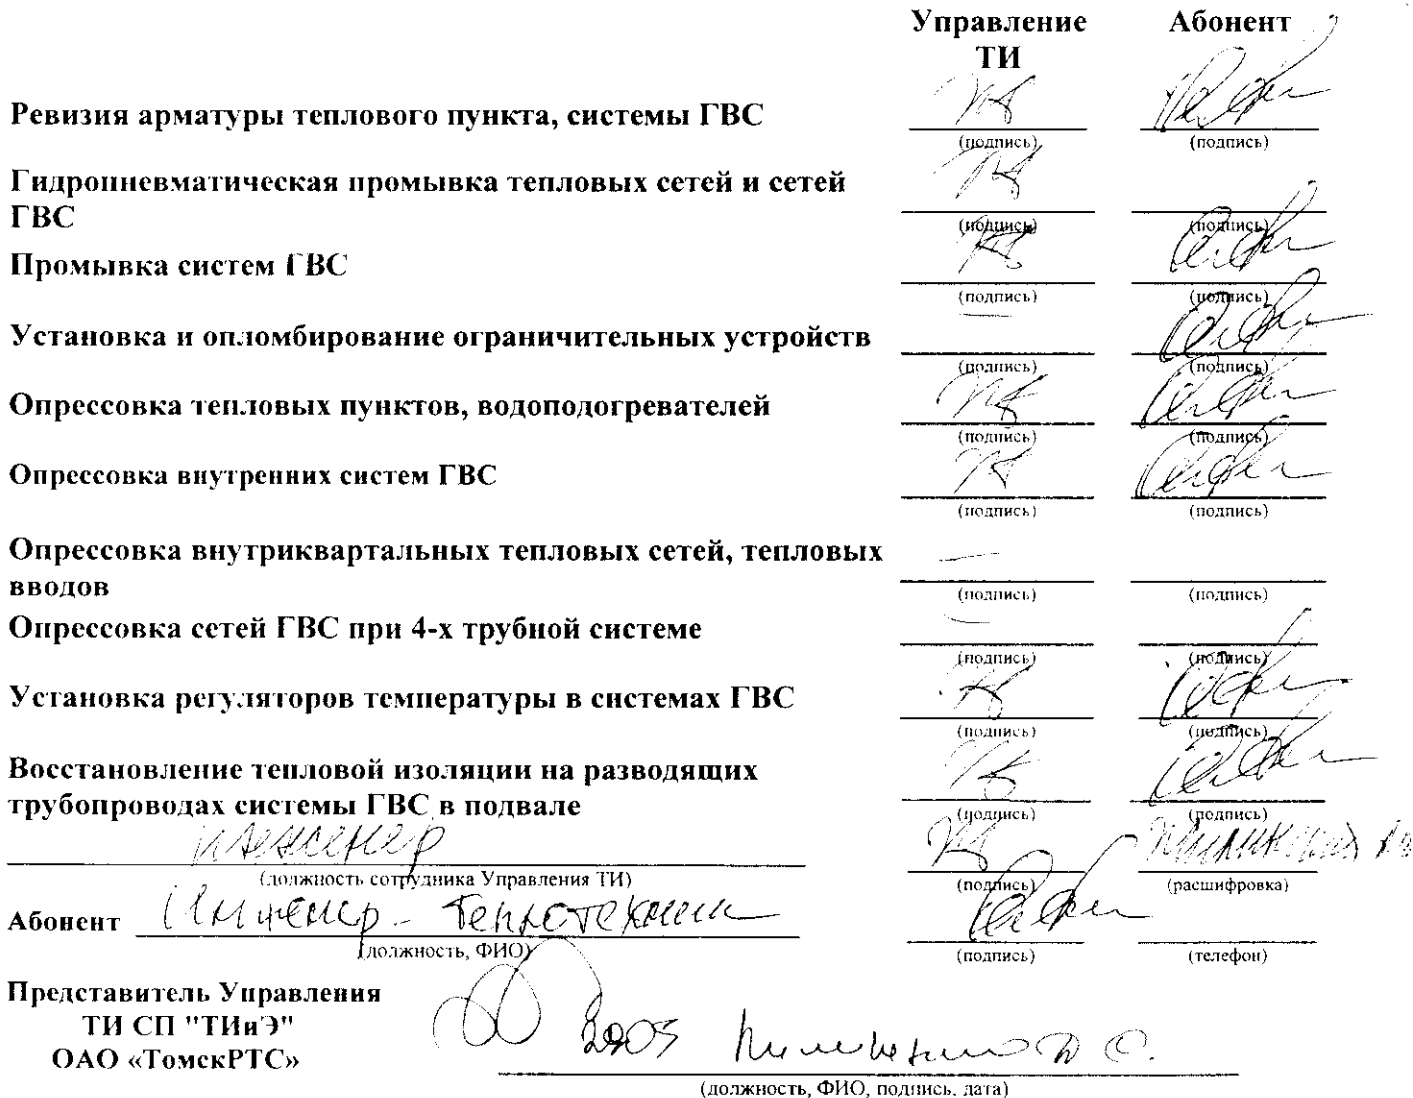 Управление ТИ
Абонент
Ревизия арматуры теплового пункта, системы ГВС
(подпись) (подпись)
Гидропневматическая промывка тепловых сетей и сетей
ГВС
(подпись) (подпись)
Промывка систем ГВС
(подпись) (подпись)
Установка и опломбирование ограничительных устройств
(подпись) (подпись)
Опрессовка тепловых пунктов, водоподогревателей
(подпись) (подпись)
Опрессовка внутренних систем ГВС
(подпись) (подпись)
Опрессовка внутриквартальных тепловых сетей, тепловых
вводов
(подпись) (подпись)
Опрессовка сетей ГВС при 4-х трубной системе
(подпись) (подпись)
Установка регуляторов температуры в системах ГВС
(подпись) (подпись)
Восстановление тепловой изоляции на разводящих
трубопроводах системы ГВС в подвале
(подпись) (подпись)
инженер
(должность сотрудника Управления ТИ) (подпись) (расшифровка)
Абонент Инженер - теплотехник
(должность, ФИО) (подпись) (телефон)
Представитель Управления
ТИ СП "ТИиЭ"
ОАО «ТомскРТС»
(должность, ФИО, подпись, дата)